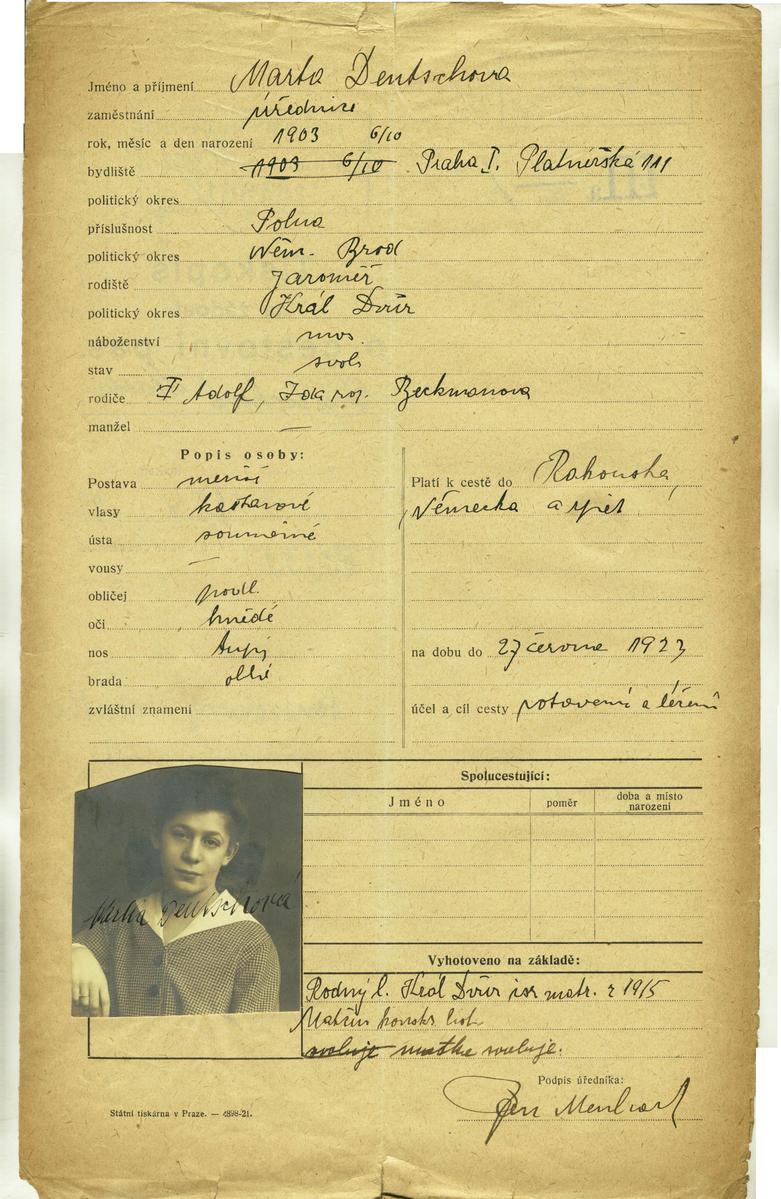 Jméno a příjmení Marta Deutschova
zaměstnání úřednice
rok, měsíc a den narození 1903 6/10
bydliště 1903 6/10 Praha I. Platnéřská 111
politický okres
příslušnost Polna
politický okres Něm. Brod
rodiště Jaroměř
politický okres Král Dvůr
náboženství mos.
stav svob.
rodiče † Adolf, Ida roz. Beckmanova
manžel —
Popis osoby:
Postava menší
vlasy kaštanové
ústa souměrné
vousy —
obličej podl.
oči hnědé
nos tupý
brada oblá
zvláštní znamení
Platí k cestě do Rakouska,
Německa a zpět
na dobu do 27 června 1923
účel a cíl cesty zotavení a léčení
Spolucestující:
Jméno poměr doba a místo narození
Marta Deutschová
Vyhotoveno na základě:
Rodný l. Král Dvůr isr. matr. z 1915
matka svoluje.
Podpis úředníka:
Státní tiskárna v Praze. — 4898-21.